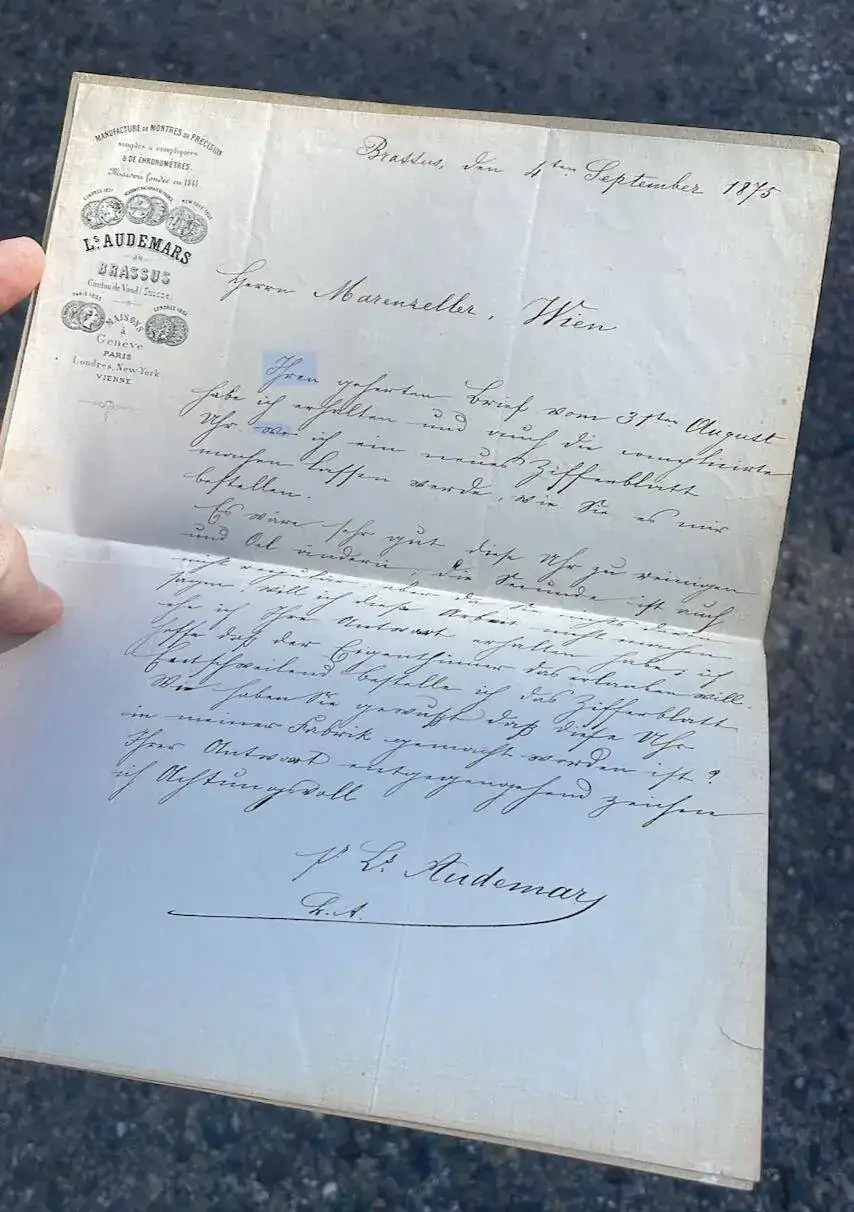 MANUFACTURE DE MONTRES DE PRÉCISION
simples & compliquées
& DE CHRONOMÈTRES.
Maison fondée en 1811
LONDRES 1851
NEW-YORK 1853
Ls. AUDEMARS
AU
BRASSUS
Canton de Vaud (Suisse)
PARIS 1855
LONDRES 1862
MAISONS
à
Genève
PARIS
Londres, New-York
VIENNE
Brassus, den 4ten September 1875
Herrn Marenzeller, Wien
Ihren geherten Brief vom 31ten August
habe ich erhalten und auch die complicirte
Uhr wo ich ein neues Zifferblatt
machen lassen werde, wie Sie es mir
bestellen.
Es wäre sehr gut diese Uhr zu reinigen
und Oel ändern, die Secunde ist auch
nicht aber da Sie nichts
sagen, will ich diese Arbeit nicht machen
ehe ich Ihre Antwort erhalten habe; ich
hoffe daß der Eigenthümer das erlauben will.
Einstweilend bestelle ich das Zifferblatt
Wie haben Sie gewußt daß diese Uhr
in meiner Fabrik gemacht worden ist?
Ihrer Antwort entgegengehend zeichne
ich Achtungsvoll
pr Ls. Audemars
L.A.